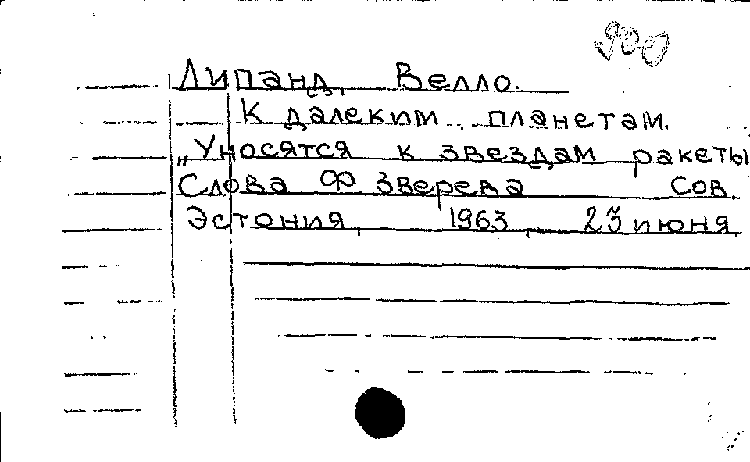 Липанд, Велло.
К далеким планетам.
„Уносятся к звездам ракеты
Слова Ф Зверева Сов.
Эстония, 1963, 23 июня.